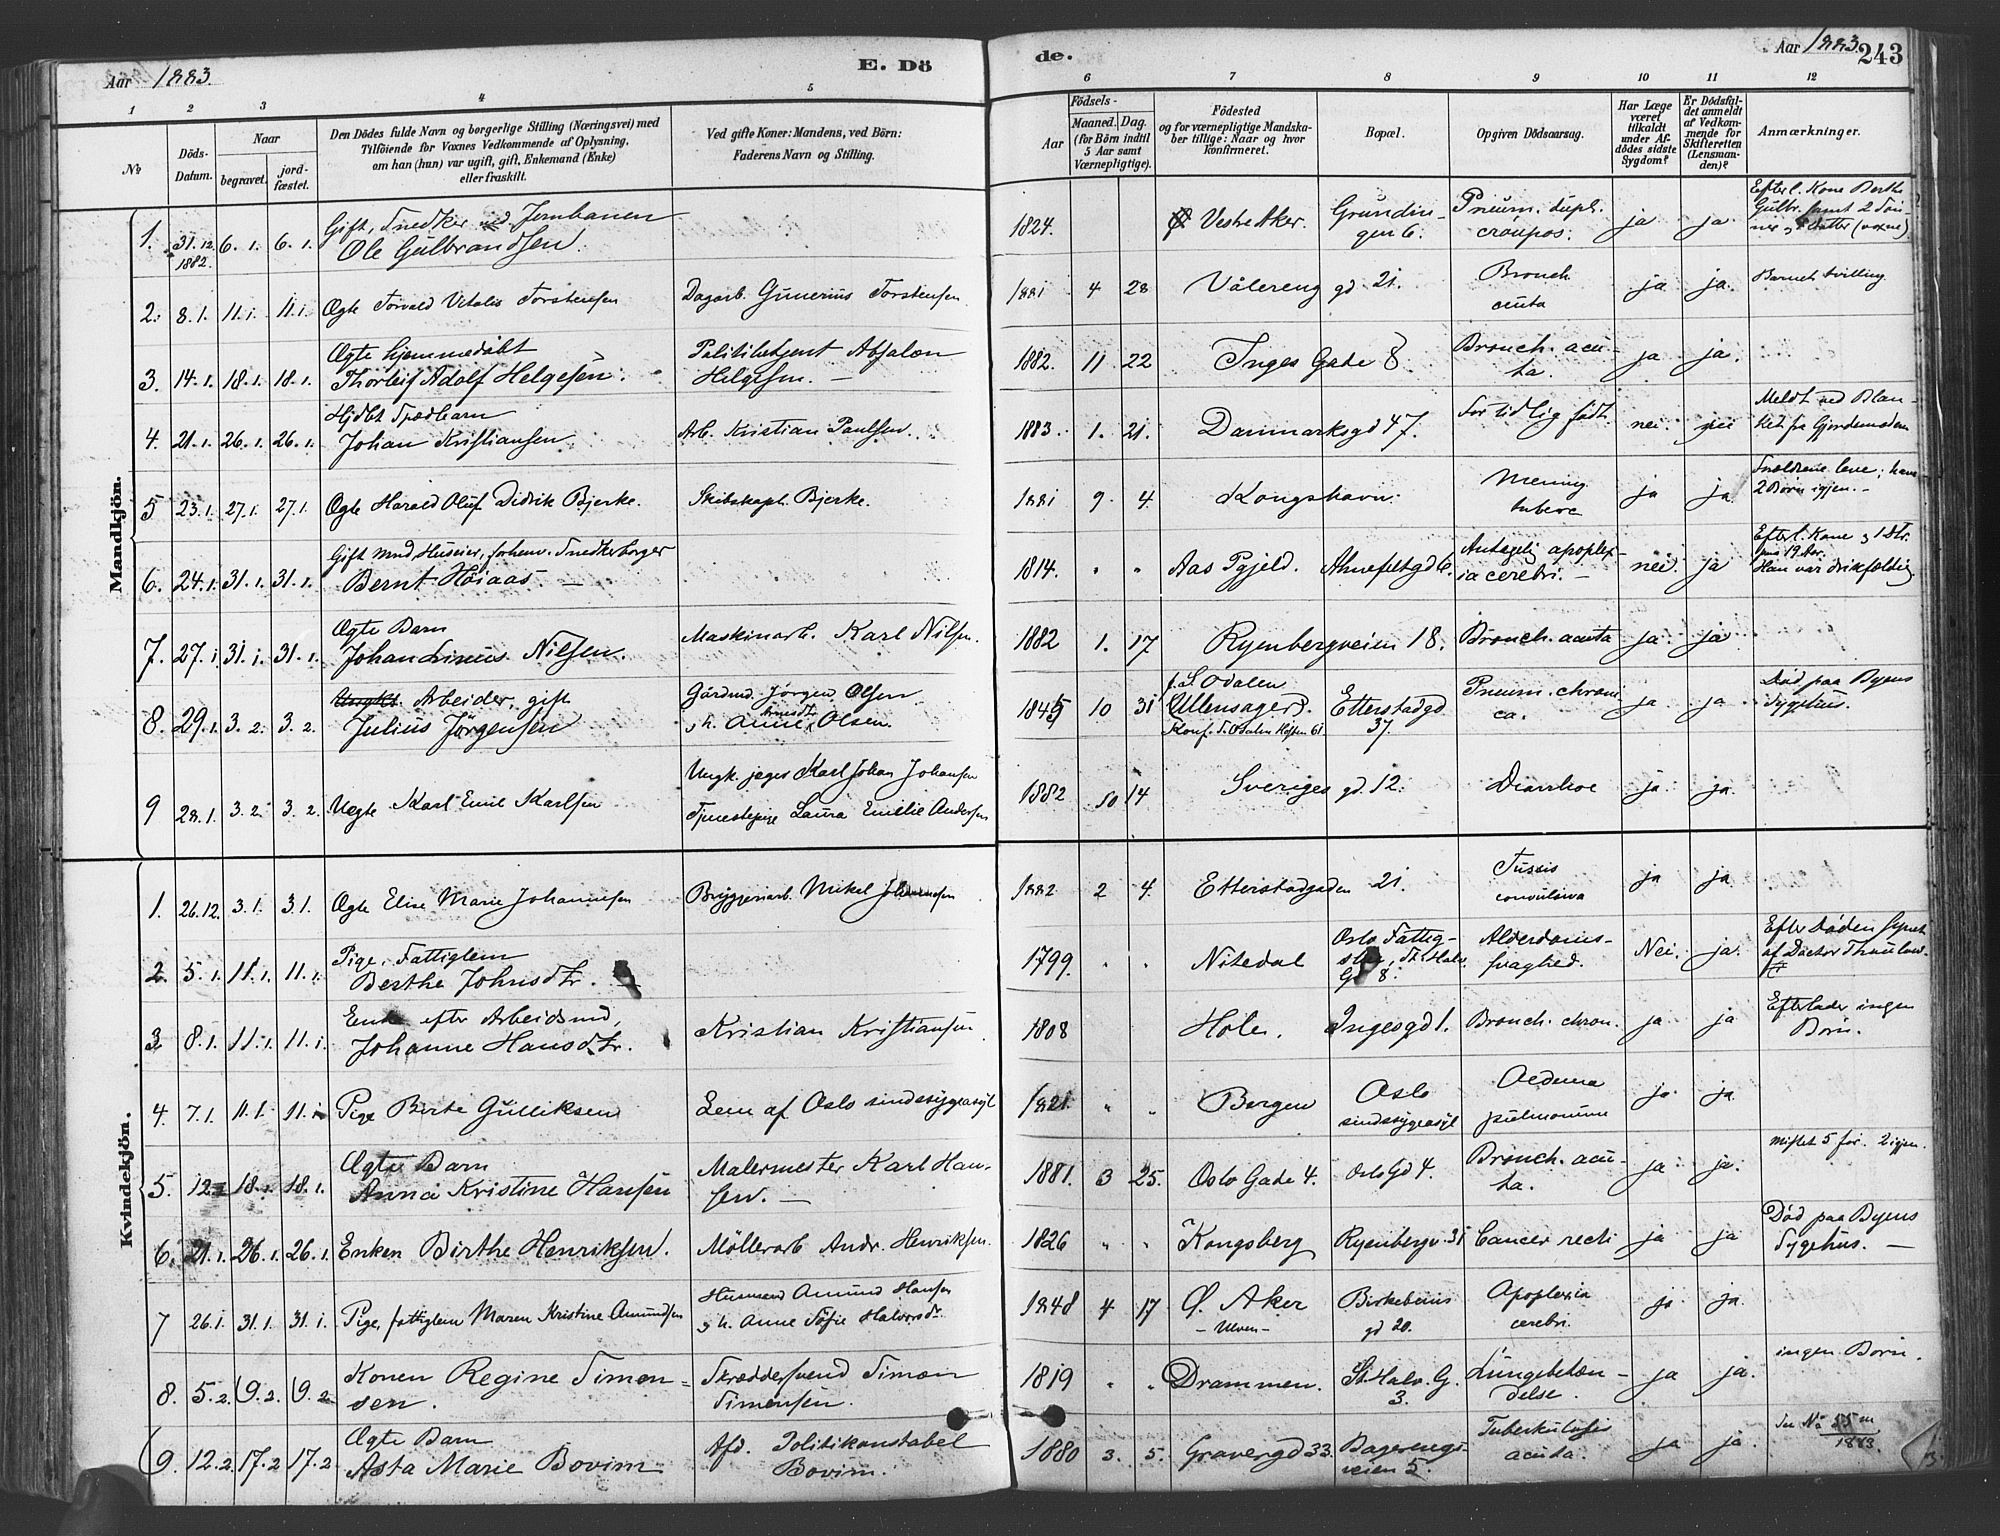 Aar 1883.
E. Dö
de.
Aar 1883.
243
1 2 3 4 5 6 7 8 9 10 11 12
No
Döds-
Datum.
Naar
begravet.
jord-
fæstet.
Den Dödes fulde Navn og borgerlige Stilling (Næringsvei) med
Tilföiende for Voxnes Vedkommende af Oplysning,
om han (hun) var ugift, gift, Enkemand (Enke)
eller fraskilt.
Ved gifte Koner: Mandens, ved Börn:
Faderens Navn og Stilling.
Födsels-
Aar
Maaned. Dag.
(for Börn indtil
5 Aar samt
Værnepligtige).
Födested
og for værnepligtige Mandska-
ber tillige: Naar og hvor
konfirmeret.
Bopæl.
Opgiven Dödsaarsag.
Har Læge
været
tilkaldt
under Af-
dödes sidste
Sygdom?
Er Dödsfal-
det anmeldt
af Vedkom-
mende for
Skifteretten
(Lensman-
den)?
Anmærkninger.
Mandkjön.
1. 31.12. 1882. 6.1. 6.1. Gift, Snedker ved Jernbanen
Ole Gulbrandsen.
1824. Vestre Aker. Grundin-
gen 6. Pneum. dupl.
croupos. ja ja Efterl. Kone Berthe
Gulbr. samt 2 Søn-
ner, Datter (voxne)
2. 8.1. 11.1. 11.1. Ægte Torvald Vitalis Torstensen Dagarb. Gunerius Torstensen
1881 4 28 Vålereng gd 21. Bronch
acuta ja ja. Barnet tvilling
3. 14.1. 18.1. 18.1. Ægte hjemmedøbt
Thorleif Adolf Helgesen. Politibetjent Absalon
Helgesen. —
1882. 11 22 Inges Gade 8. Bronch. acu-
ta. ja ja.
4. 21.1. 26.1. 26.1. Hjdbt Spædbarn
Johan Kristiansen Arb. Kristian Paulsen.
1883. 1. 21. Danmarksgd 47. For tidlig født. nei. nei Meldt ved Blan-
ket fra Gjordemoderen
5 23.1. 27.1. 27.1. Ægte Harald Oluf Didrik Bjerke. Skibskapt. Bjerke.
1881 9. 4. Kongshavn. Mening
tuberc ja ja Forældrene leve; have
2 Børn igjen. —
6. 24.1. 31.1. 31.1. Gift Mnd Huseier, forhenv. Snedkerborger
Bernt Høiaas —
1814. " " Aas Pgjeld. Ahnefeltgd 6. Antagelig apoplex-
ia cerebri. — nei. ja Efterl. Kone 1 Dtr.
19 Aar.
Han var drikfældig
7. 27.1 31.1. 31.1. Ægte Barn
Johan Linus Nilsen. Maskinarb. Karl Nilsen.
1882 1. 17 Ryenbergveien 18. Bronch. acuta ja ja
8. 29.1. 3.2. 3.2. Ungkl. Arbeider, gift
Julius Jørgensen Gårdmd. Jørgen Olsen
h. Anne Olsen
1845 10 31 f. S. Odalen
Ullensager.
Konf. S. Odalen 61 Etterstadgd
37. Pneum. chroni
ca. ja ja. Død paa Byens
Sygehus.
9 28.1. 3.2. 3.2. Uegte Karl Emil Karlsen Ungk. Karl Johan Johansen
Tjenestepige Laura Emilie Andersen
1882 10 14 Sveriges gd 12. Diarrhoe ja. ja.
Kvindekjön.
1. 26.12. 3.1. 3.1. Ægte Elise Marie Johannesen Bryggeriarb. Mikel Johannesen
1882 2 4. Etterstadgaden 21. Tussis
convulsiva ja ja.
2. 5.1. 11.1. 11.1. Pige, Fattiglem
Berthe Johnsdtr.
1799. " " Nitedal Oslo Fattig-
St. Halv.
Gd 8. Alderdoms-
svaghed. Nei. ja. Efter Døden synet
af Doctor Thaulow.
3. 8.1. 11.1. 11.1. Enke efter Arbeidsmd,
Johanne Hansdtr. Kristian Kristiansen
1808 Hole. Ingesgd 1. Bronch. chron. ja ja Efterlader ingen
Børn.
4. 7.1. 11.1. 11.1. Pige Berte Gulliksen Lem af Oslo sindssygeasyl
1821. " " Bergen Oslo
sindssygeasyl Oedema
pulmonum ja ja.
5. 12.1 18.1. 18.1. Ægte Barn
Anna Kristine Hansen Malermester Karl Han-
sen. —
1881. 3 25. Oslo Gade 4. Oslo Gd 4. Bronch. acu-
ta. ja ja. mistet 5 før. 2 igjen.
6. 21.1. 26.1. 26.1. Enken Birthe Henriksen. Möllerarb Andr. Henriksen.
1826 " " Kongsberg Ryenbergv. 31 Cancer recti ja ja Død paa Byens
Sygehus. —
7 26.1. 31.1. 31.1. Pige, fattiglem Maren Kristine Amundsen Husmand Amund Hansen
h. Anne Sofie Halvorsdr
1848 4 17 Ø. Aker
— Ulven — Birkebeins
gd 20. Apoplexia
cerebri. ja ja.
8. 5.2. 9.2. 9.2. Konen Regine Simen-
sen. Skræddersvend Simon
Simensen.
1819 " " Drammen. St. Halv. G.
3. Lungebetæn-
delse. ja ja. ingen Børn.
9. 12.2. 17.2 17.2. Ægte Barn
Asta Marie Bovim Afd. Politikonstabel
Bovim.
1880 3. 5. Gravergd 33. Bagerengs-
veien 5. Tuberkulosis
acuta. ja ja Se No 55 m
1883.